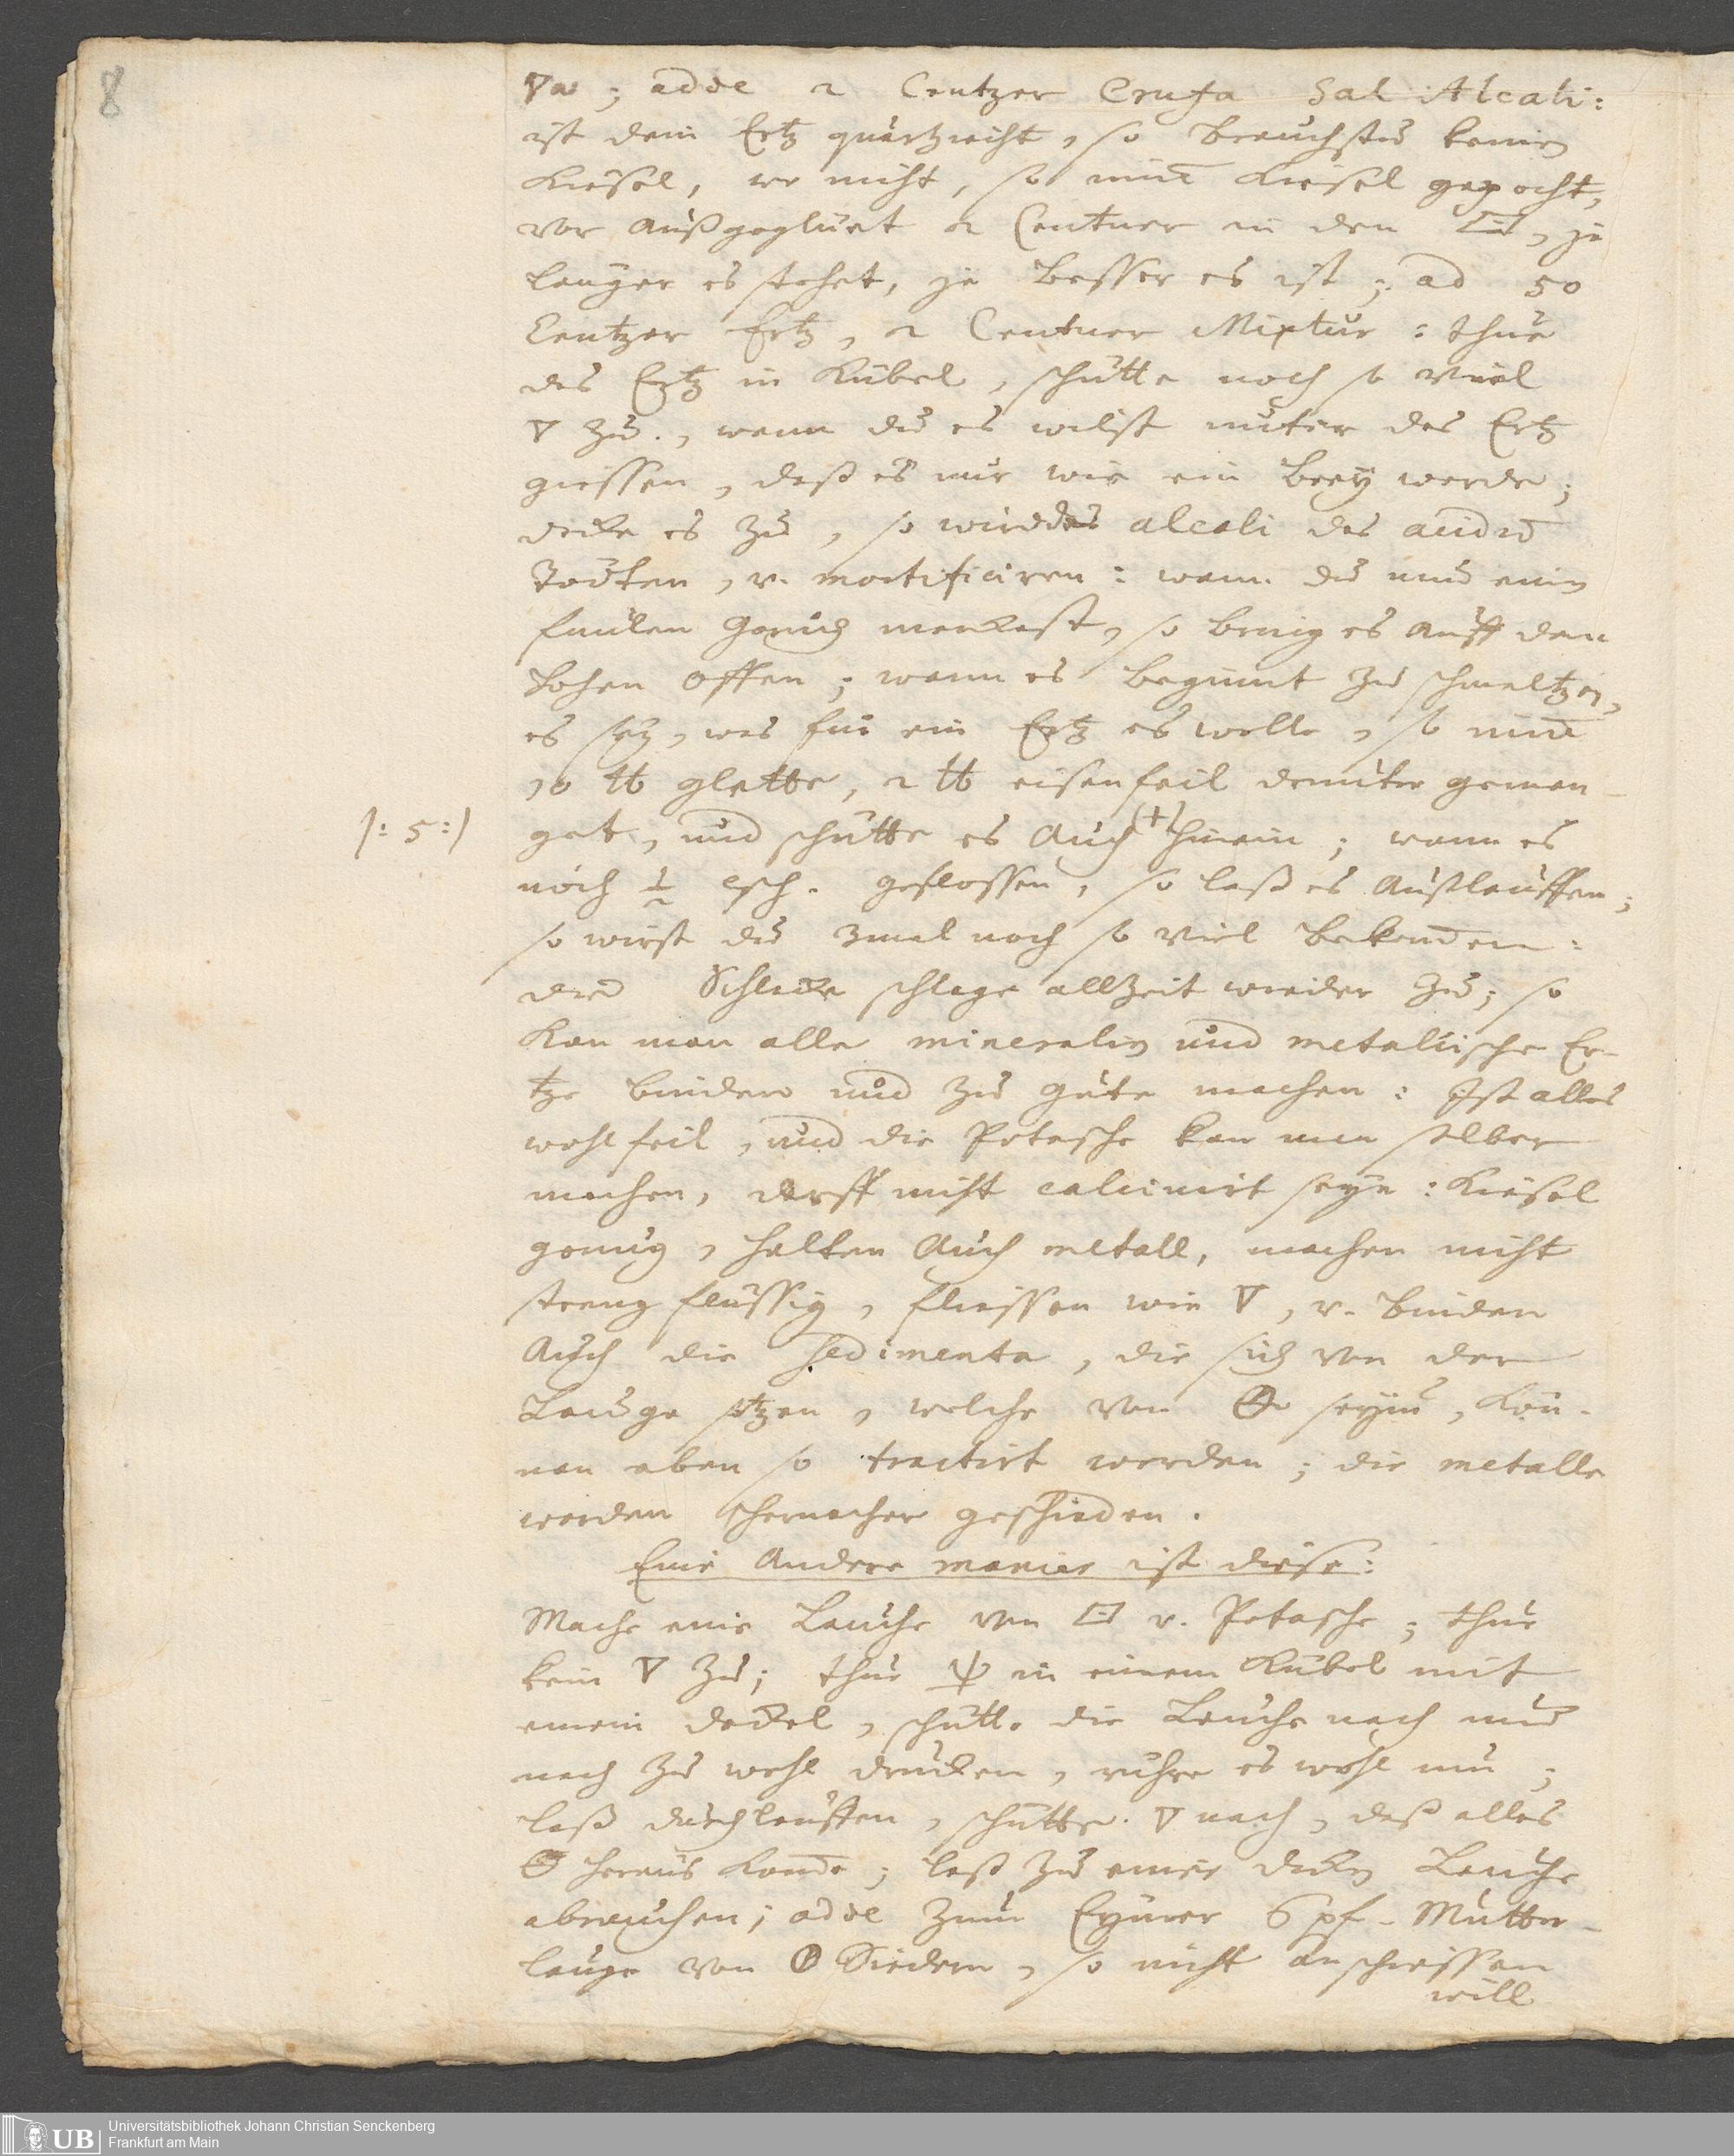 8
🜄 ; adde 2 Centzer Cruda Sal Alcali:
ist dein Ertz quartzicht, so brauchstu keinen
Kiesel, wo nicht, so nim̄ Kiesel gepocht,
vor außgegluet 2 Centner in den 🝕, je
langer es stehet, je besser es ist ; ad 50
Centzer Ertz, 2 Centner Mixtur : thue
das Ertz in Kübel, schütte noch so viel
🜄 zu., wenn du es wilst unter das Ertz
giessen, daß es nur wie ein Brey werde;
decke es zu, so wird das alcali das acidū
Todten, v. mortificiren : wann du nun einen
faulen Geruch merckest, so bring es auff den
hohen Offen ; wann es beginnt zu schmeltzen,
es sey, was für ein Ertz es wolle, so nim̄
10 ℔ glette, 2 ℔ eisenfeil drunter gemen-
/: 5 :/
get, und schütte es auch (+) hinein ; wann es
noch ½ gesch. geflossen, so laß es außlauffen;
so wirst du 3mal noch so viel bekom̄en:
die Schlacke schlage allzeit wieder zu; so
kan man alle mineralien und metallische Er-
tze binden und zu gute machen : Ist alles
wohlfeil, und die Potasche kan man selber
machen, darff nicht calcinirt seyn : Kiesel
genug, halten auch metall, machen nicht
streng flüssig, fliessen wie 🜄, v. binden
Auch die sedimenta, die sich von der
Lauge setzen, welche von seynd, kön-
nen eben so tractirt werden ; die metalle
werden hernacher geschieden.
Eine Andere manier ist diese:
Mache eine Lauche von 🝕 v. Potasche ; thue
kein 🜄 zu; thue in einem Kübel mit
einem deckel, schütte die Lauche nach und
nach zu wohl drucken, ruhre es wohl um ;
laß durchlauffen, schütte 🜄 nach, daß alles
🜔 heraus kom̄e ; laß zu einer dicken Lauche
abrauchen ; adde zum Eymer 6 pf. Mutter-
lauge von Siedern, so nicht anschiessen
will
Universitätsbibliothek Johann Christian Senckenberg
Frankfurt am Main
UB